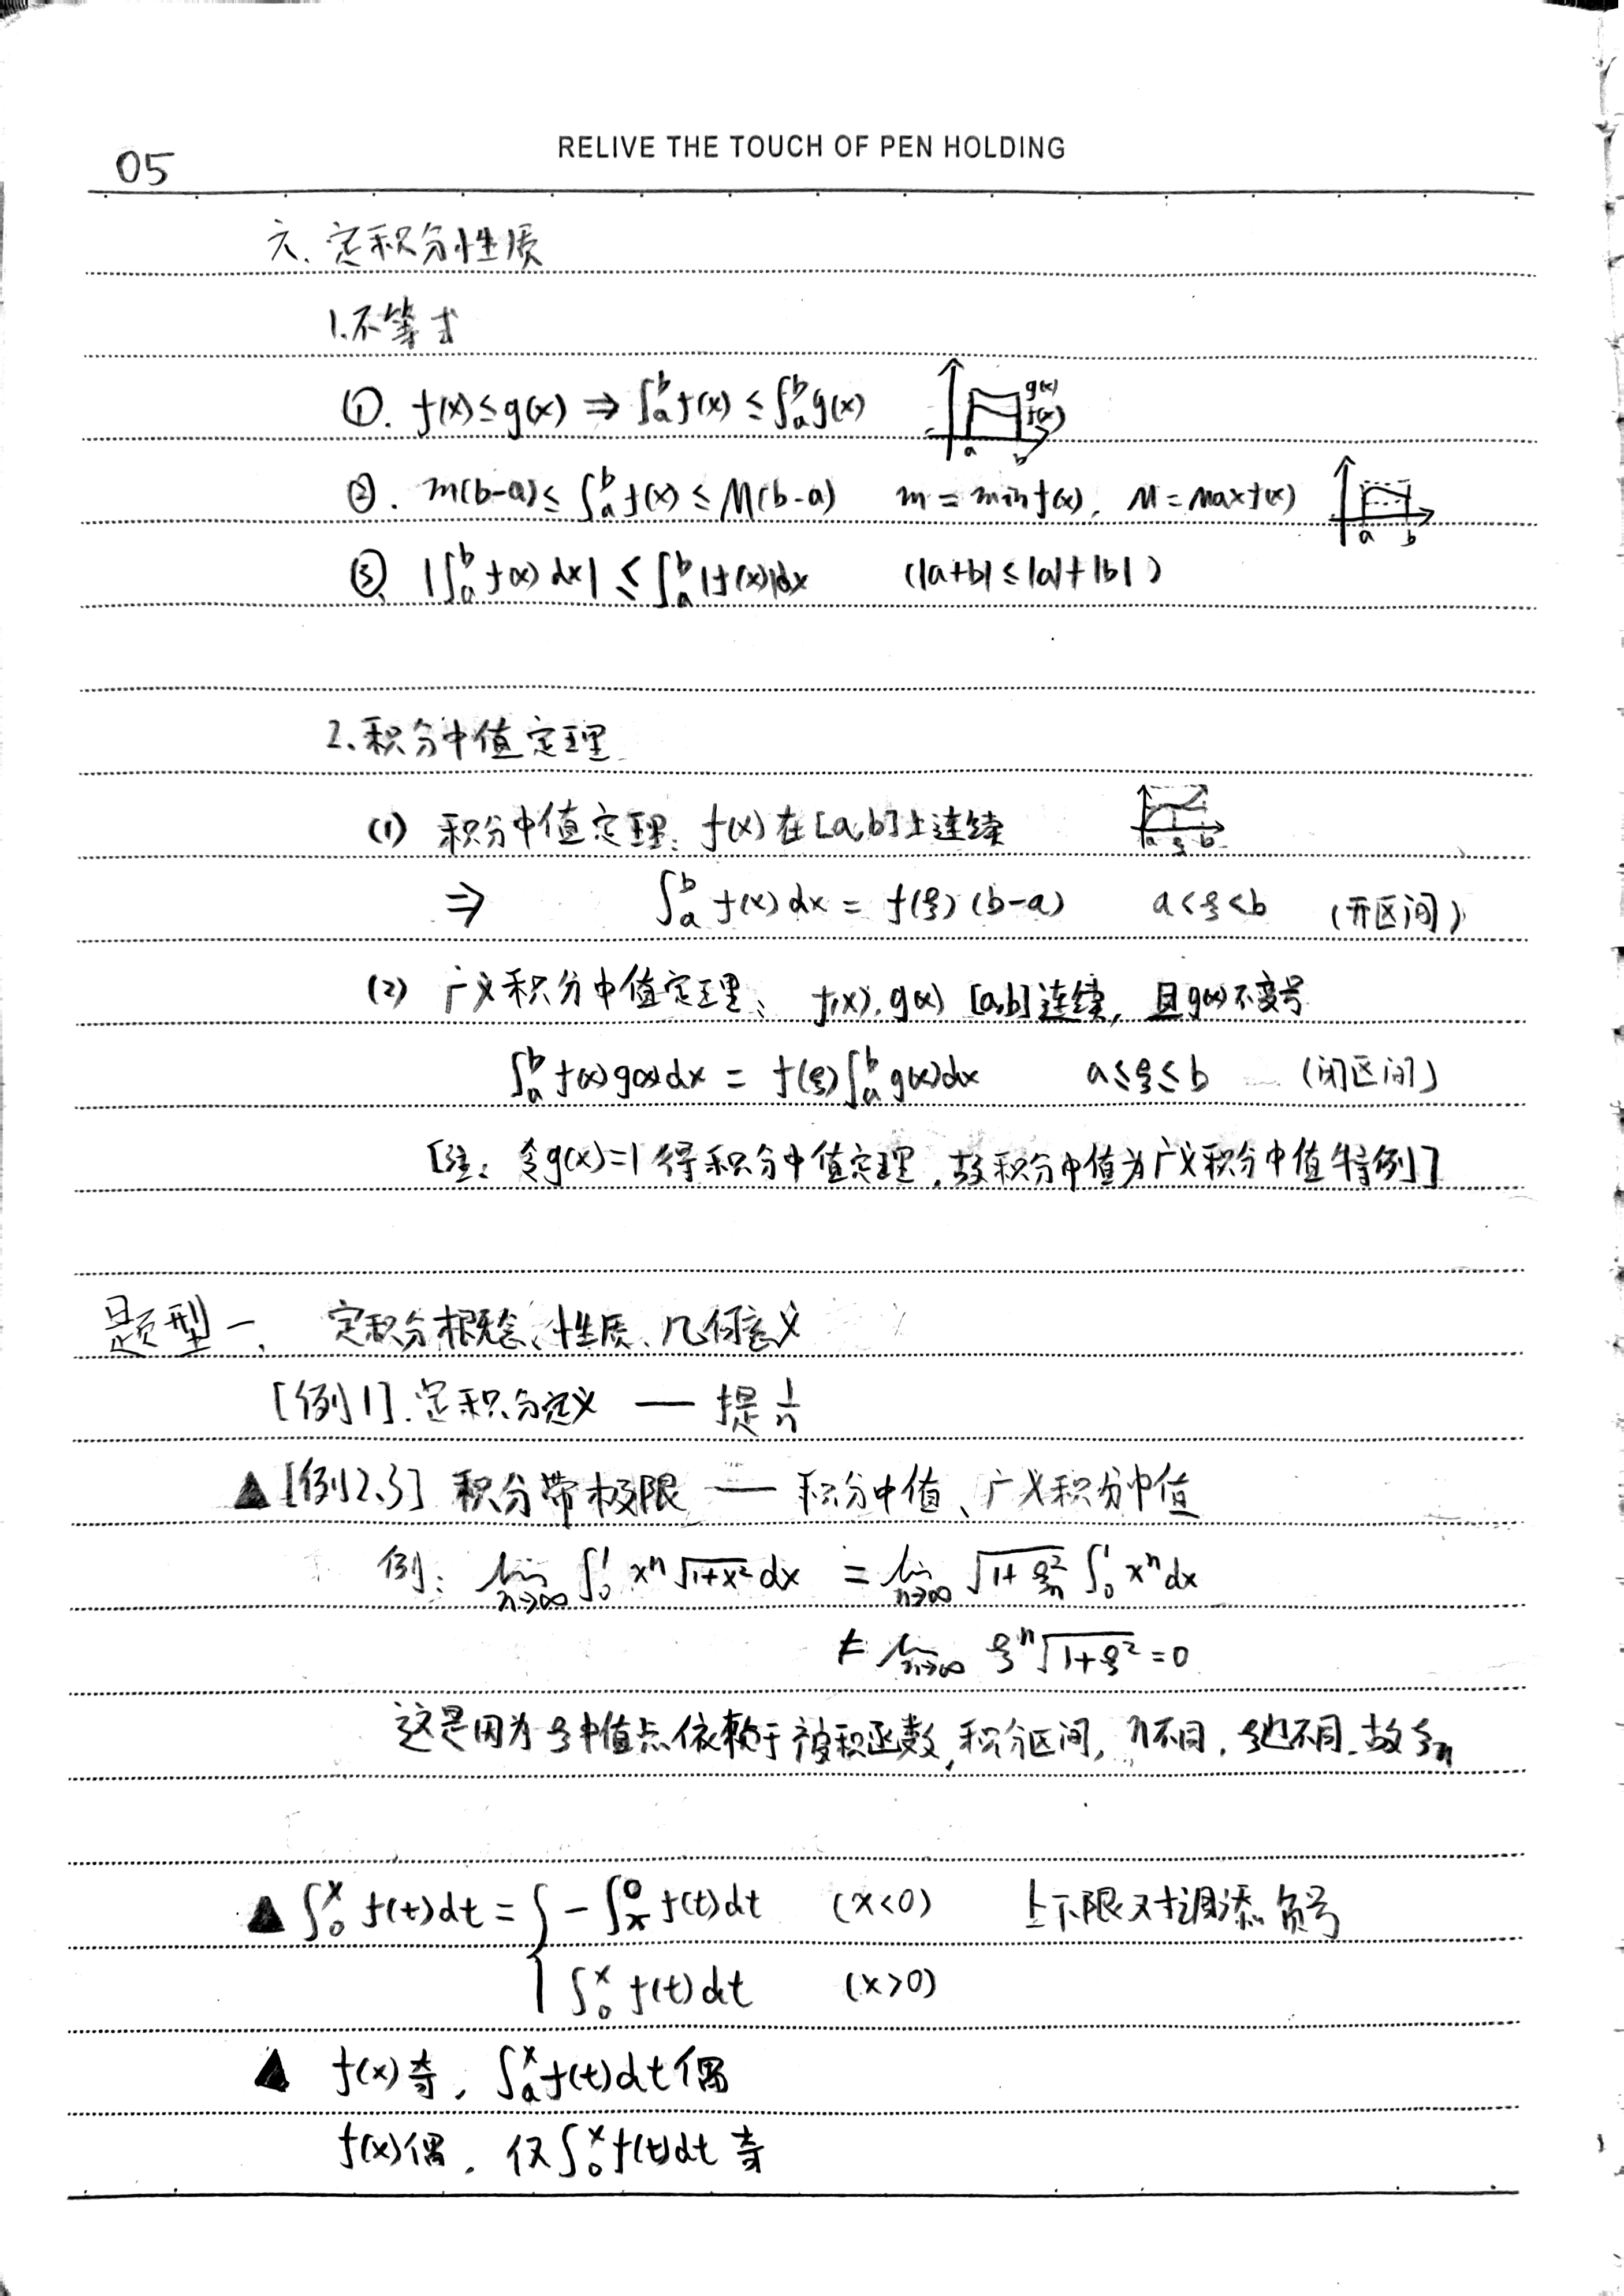 RELIVE THE TOUCH OF PEN HOLDING
05
六、定积分性质
1.不等式
①. f(x)≤g(x) ⇒ ∫ₐᵇf(x) ≤ ∫ₐᵇg(x) g(x) f(x) a b
②. m(b-a) ≤ ∫ₐᵇf(x) ≤ M(b-a) m = minf(x), M = maxf(x) a b
③ |∫ₐᵇf(x)dx| ≤ ∫ₐᵇ|f(x)|dx (|a+b|≤|a|+|b|)
2、积分中值定理
(1) 积分中值定理: f(x)在[a,b]上连续 a ξ b
⇒ ∫ₐᵇf(x)dx = f(ξ)(b-a) a<ξ<b (开区间)
(2) 广义积分中值定理: f(x),g(x) [a,b]连续, 且g(x)不变号
∫ₐᵇf(x)g(x)dx = f(ξ)∫ₐᵇg(x)dx a≤ξ≤b (闭区间)
[注: 令g(x)=1得积分中值定理, 故积分中值为广义积分中值特例]
题型一、 定积分概念、性质、几何意义
[例1].定积分定义 — 提1/n
▲[例2、3] 积分带极限 — 积分中值、广义积分中值
例: lim n→∞ ∫₀¹ xⁿ√(1+x²)dx = lim n→∞ √(1+ξₙ²) ∫₀¹ xⁿdx
≠ lim n→∞ ξⁿ√(1+ξ²) = 0
这是因为ξ中值点依赖于被积函数,积分区间, n不同, ξ也不同.故ξₙ
▲ ∫₀ˣf(t)dt = { -∫ₓ⁰f(t)dt (x<0) 上下限对调添负号
∫₀ˣf(t)dt (x>0)
▲ f(x)奇, ∫ₐˣf(t)dt偶
f(x)偶, 仅∫₀ˣf(t)dt奇